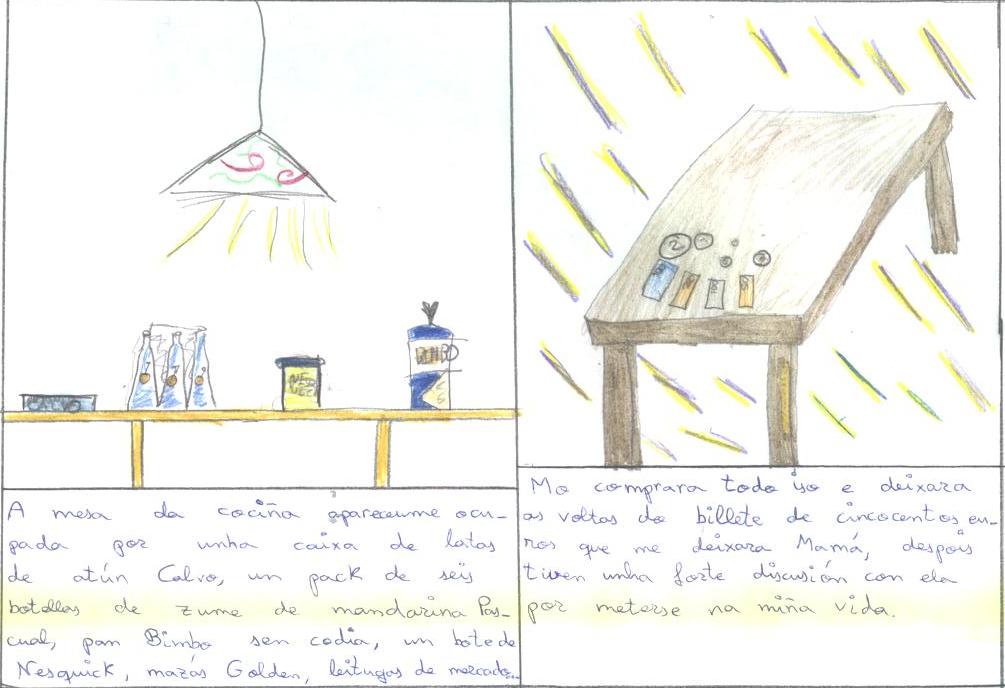 CALVO
NES
BIMBO
2
A mesa da cociña apareceume ocu-
pada por unha caixa de latas
de atún Calvo, un pack de seis
botellas de zume de mandarina Pas-
cual, pan Bimbo sen codia, un bote de
Nesquick, mazás Golden, leitugas de mercado...
Mo comprara todo iso e deixara
as voltas do billete de cincocentos eu-
ros que me deixara Mamá, despois
tiven unha forte discusión con ela
por meterse na miña vida.